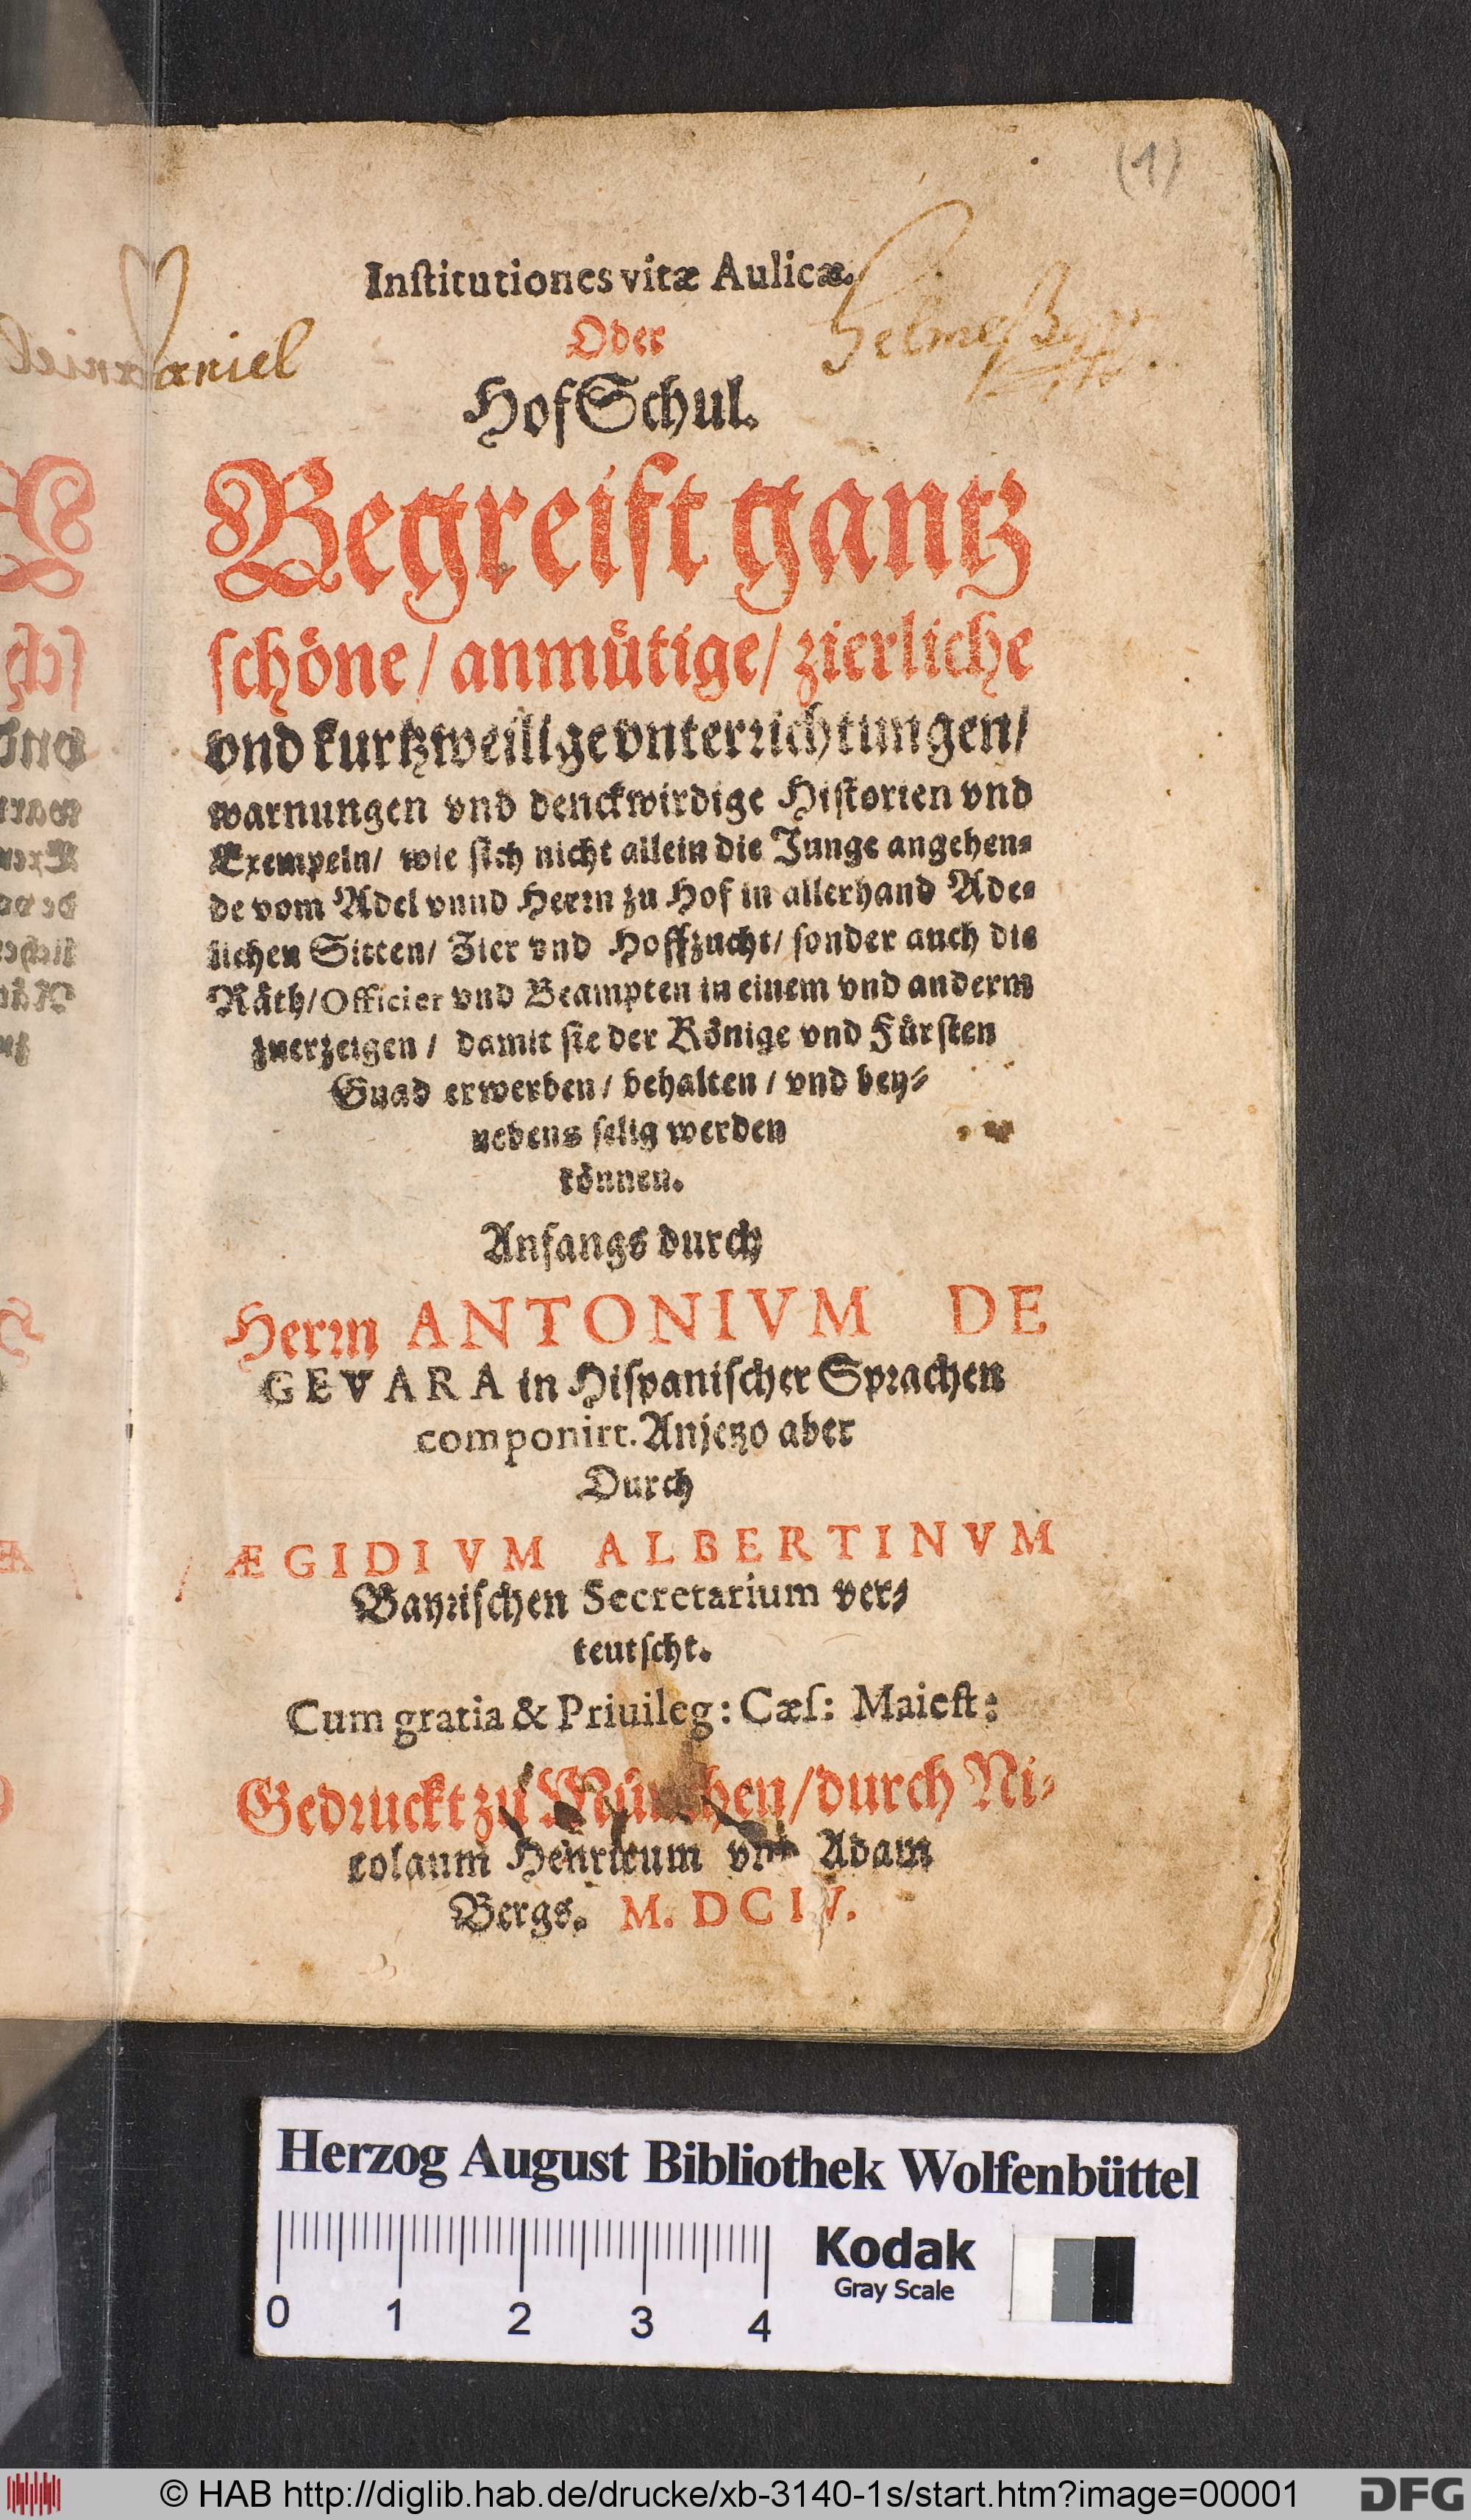 (1)
Inſtitutiones vitæ Aulicæ.
Oder
Daniel
HofSchul.
Begreift gantz
ſchöne/ anmuͤtige/ zierliche
vnd kurtzweilige vnterrichtungen/
warnungen vnd denckwirdige Hiſtorien vnd
Exempeln/ wie ſich nicht allein die Junge angehen⸗
de vom Adel vnnd Herrn zu Hof in allerhand Ade⸗
lichen Sitten/ Zier vnd Hoffzucht/ ſonder auch die
Raͤth/ Officier vnd Beampten in einem vnd anderm
zuerzeigen/ damit ſie der Koͤnige vnd Fuͤrſten
Gnad erwerben/ behalten/ vnd bey⸗
nebens ſelig werden
koͤnnen.
Anfangs durch
Herrn ANTONIVM DE
GEVARA in Hiſpaniſcher Sprachen
componirt. Anjetzo aber
Durch
ÆGIDIVM ALBERTINVM
Bayriſchen Secretarium ver⸗
teutſcht.
Cum gratia & Priuileg: Cæſ: Maieſt:
Gedruckt zu Muͤnchen/ durch Ni⸗
colaum Henricum vnd Adam
Bergs. M. DCIV.
Herzog August Bibliothek Wolfenbüttel
0 1 2 3 4
Kodak
Gray Scale
© HAB http://diglib.hab.de/drucke/xb-3140-1s/start.htm?image=00001
DFG